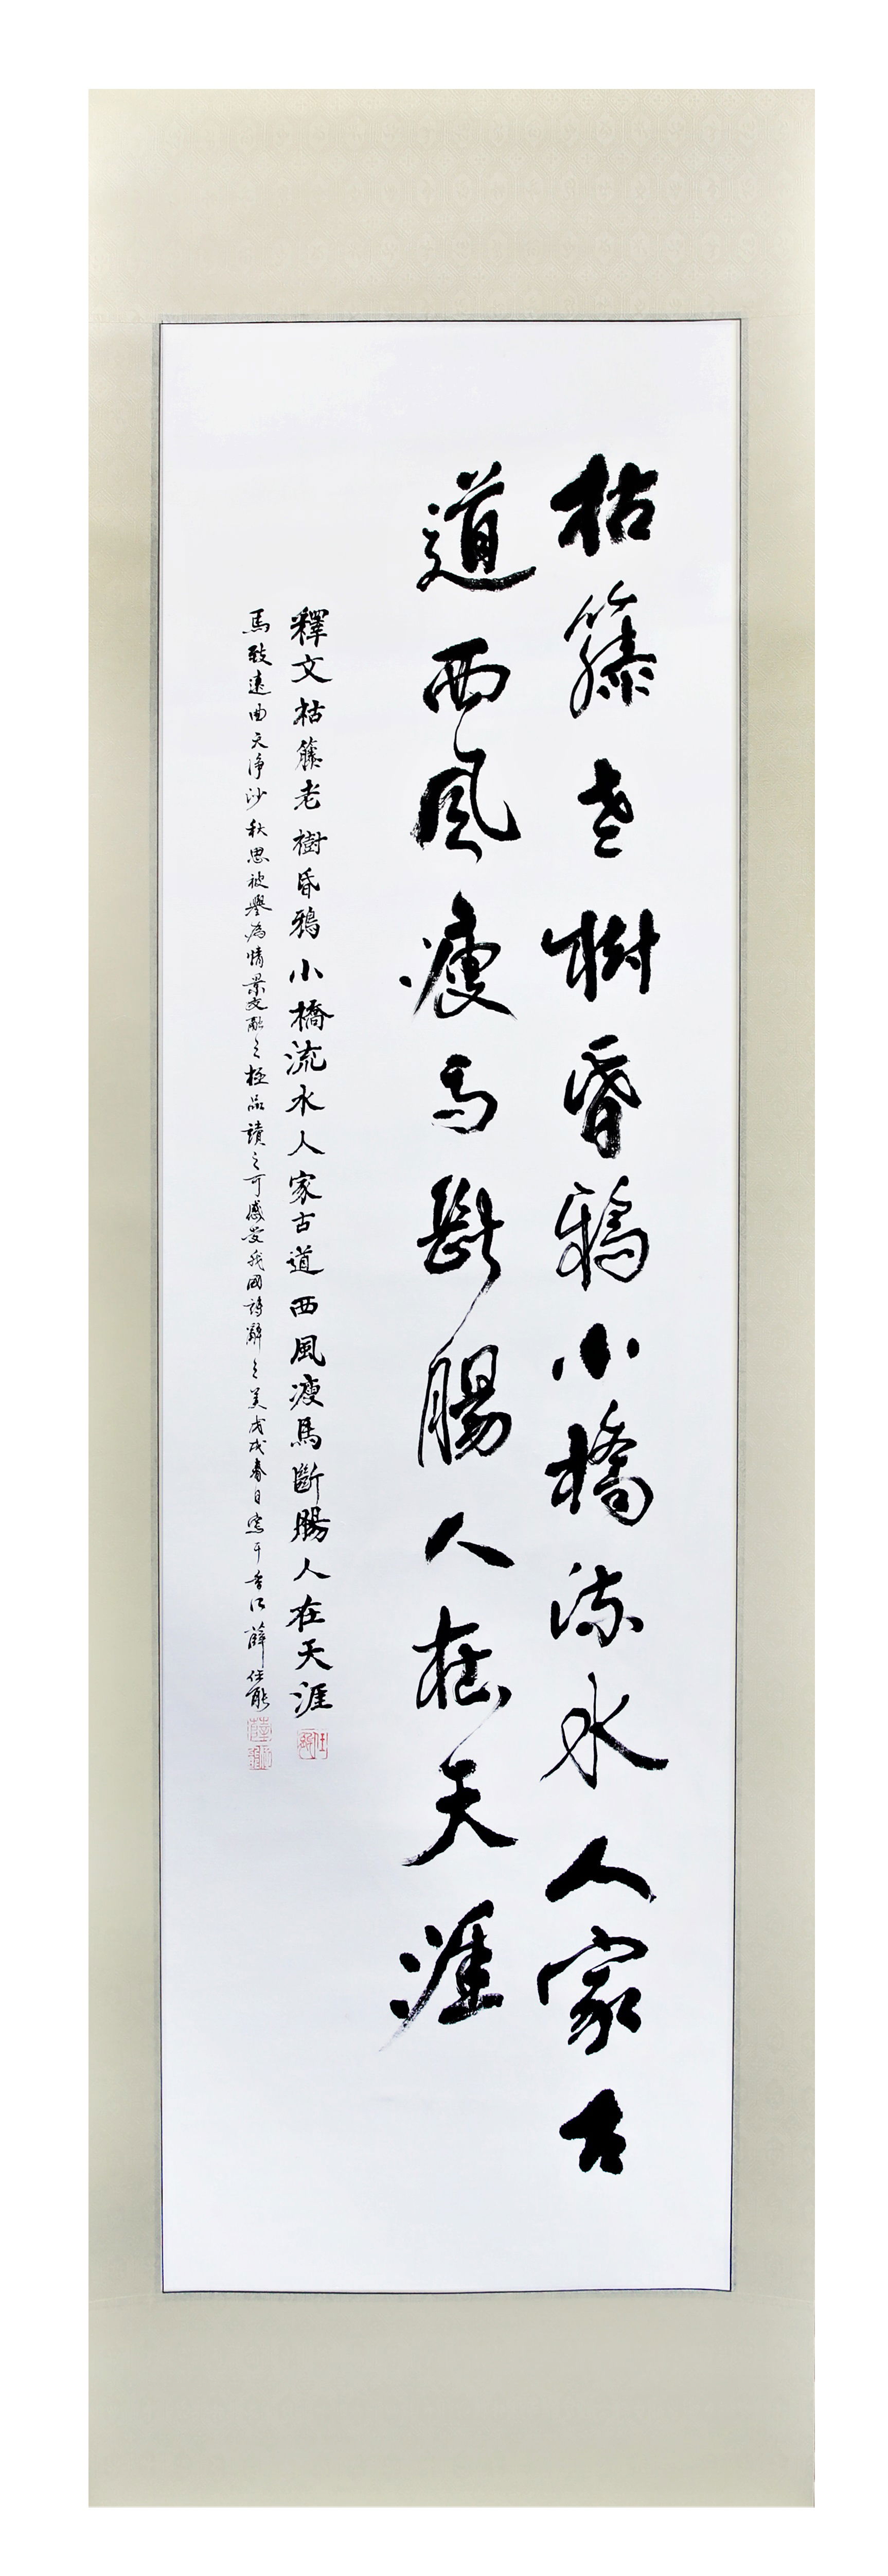 枯籐老樹昏鴉小橋流水人家古
道西風瘦馬斷腸人在天涯
釋文枯籐老樹昏鴉小橋流水人家古道西風瘦馬斷腸人在天涯
馬致遠曲天淨沙秋思被譽為情景交融之極品讀之可感受我國詩辭之美戊戌春日寫于香江薛仕能